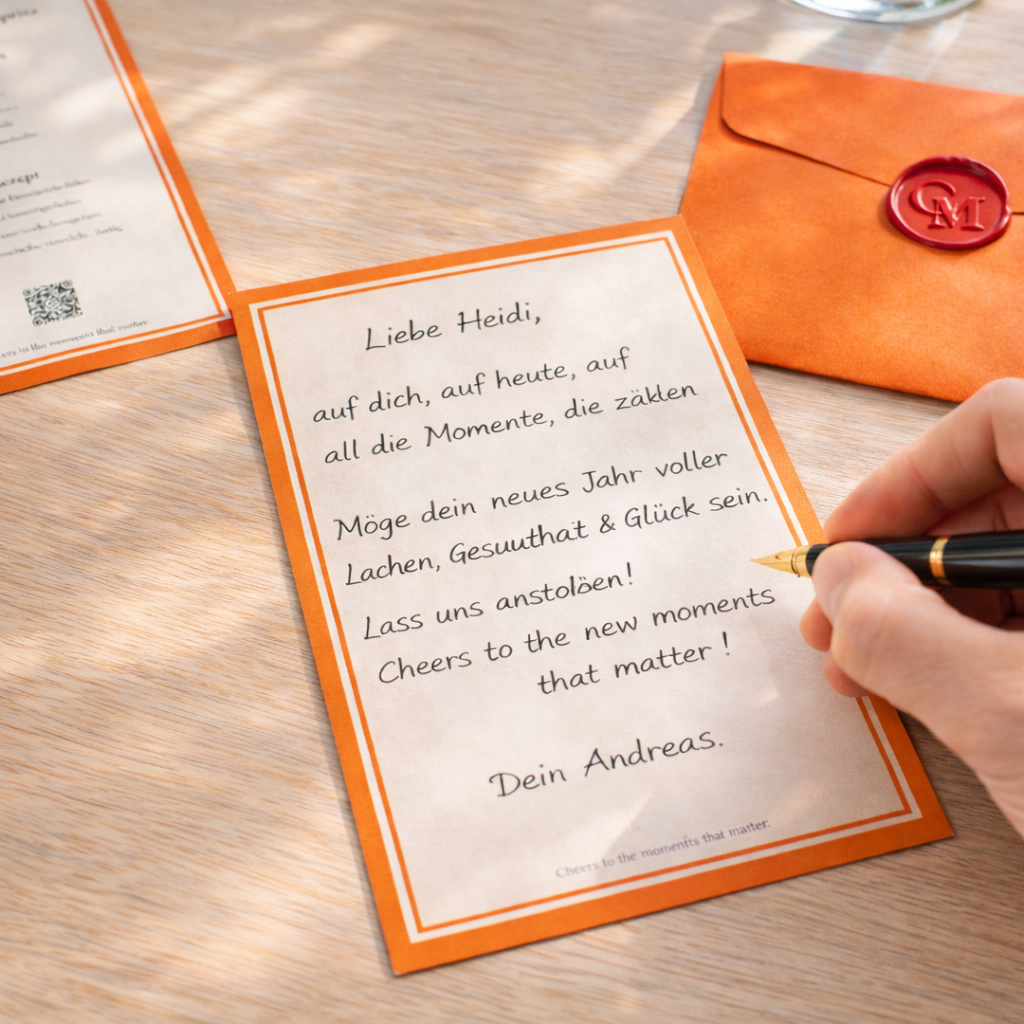 Liebe Heidi,
auf dich, auf heute, auf
all die Momente, die zäklen
Möge dein neues Jahr voller
Lachen, Gesuuthat & Glück sein.
Lass uns anstolöen!
Cheers to the new moments
that matter !
Dein Andreas.
Cheers to the moments that matter.
CM